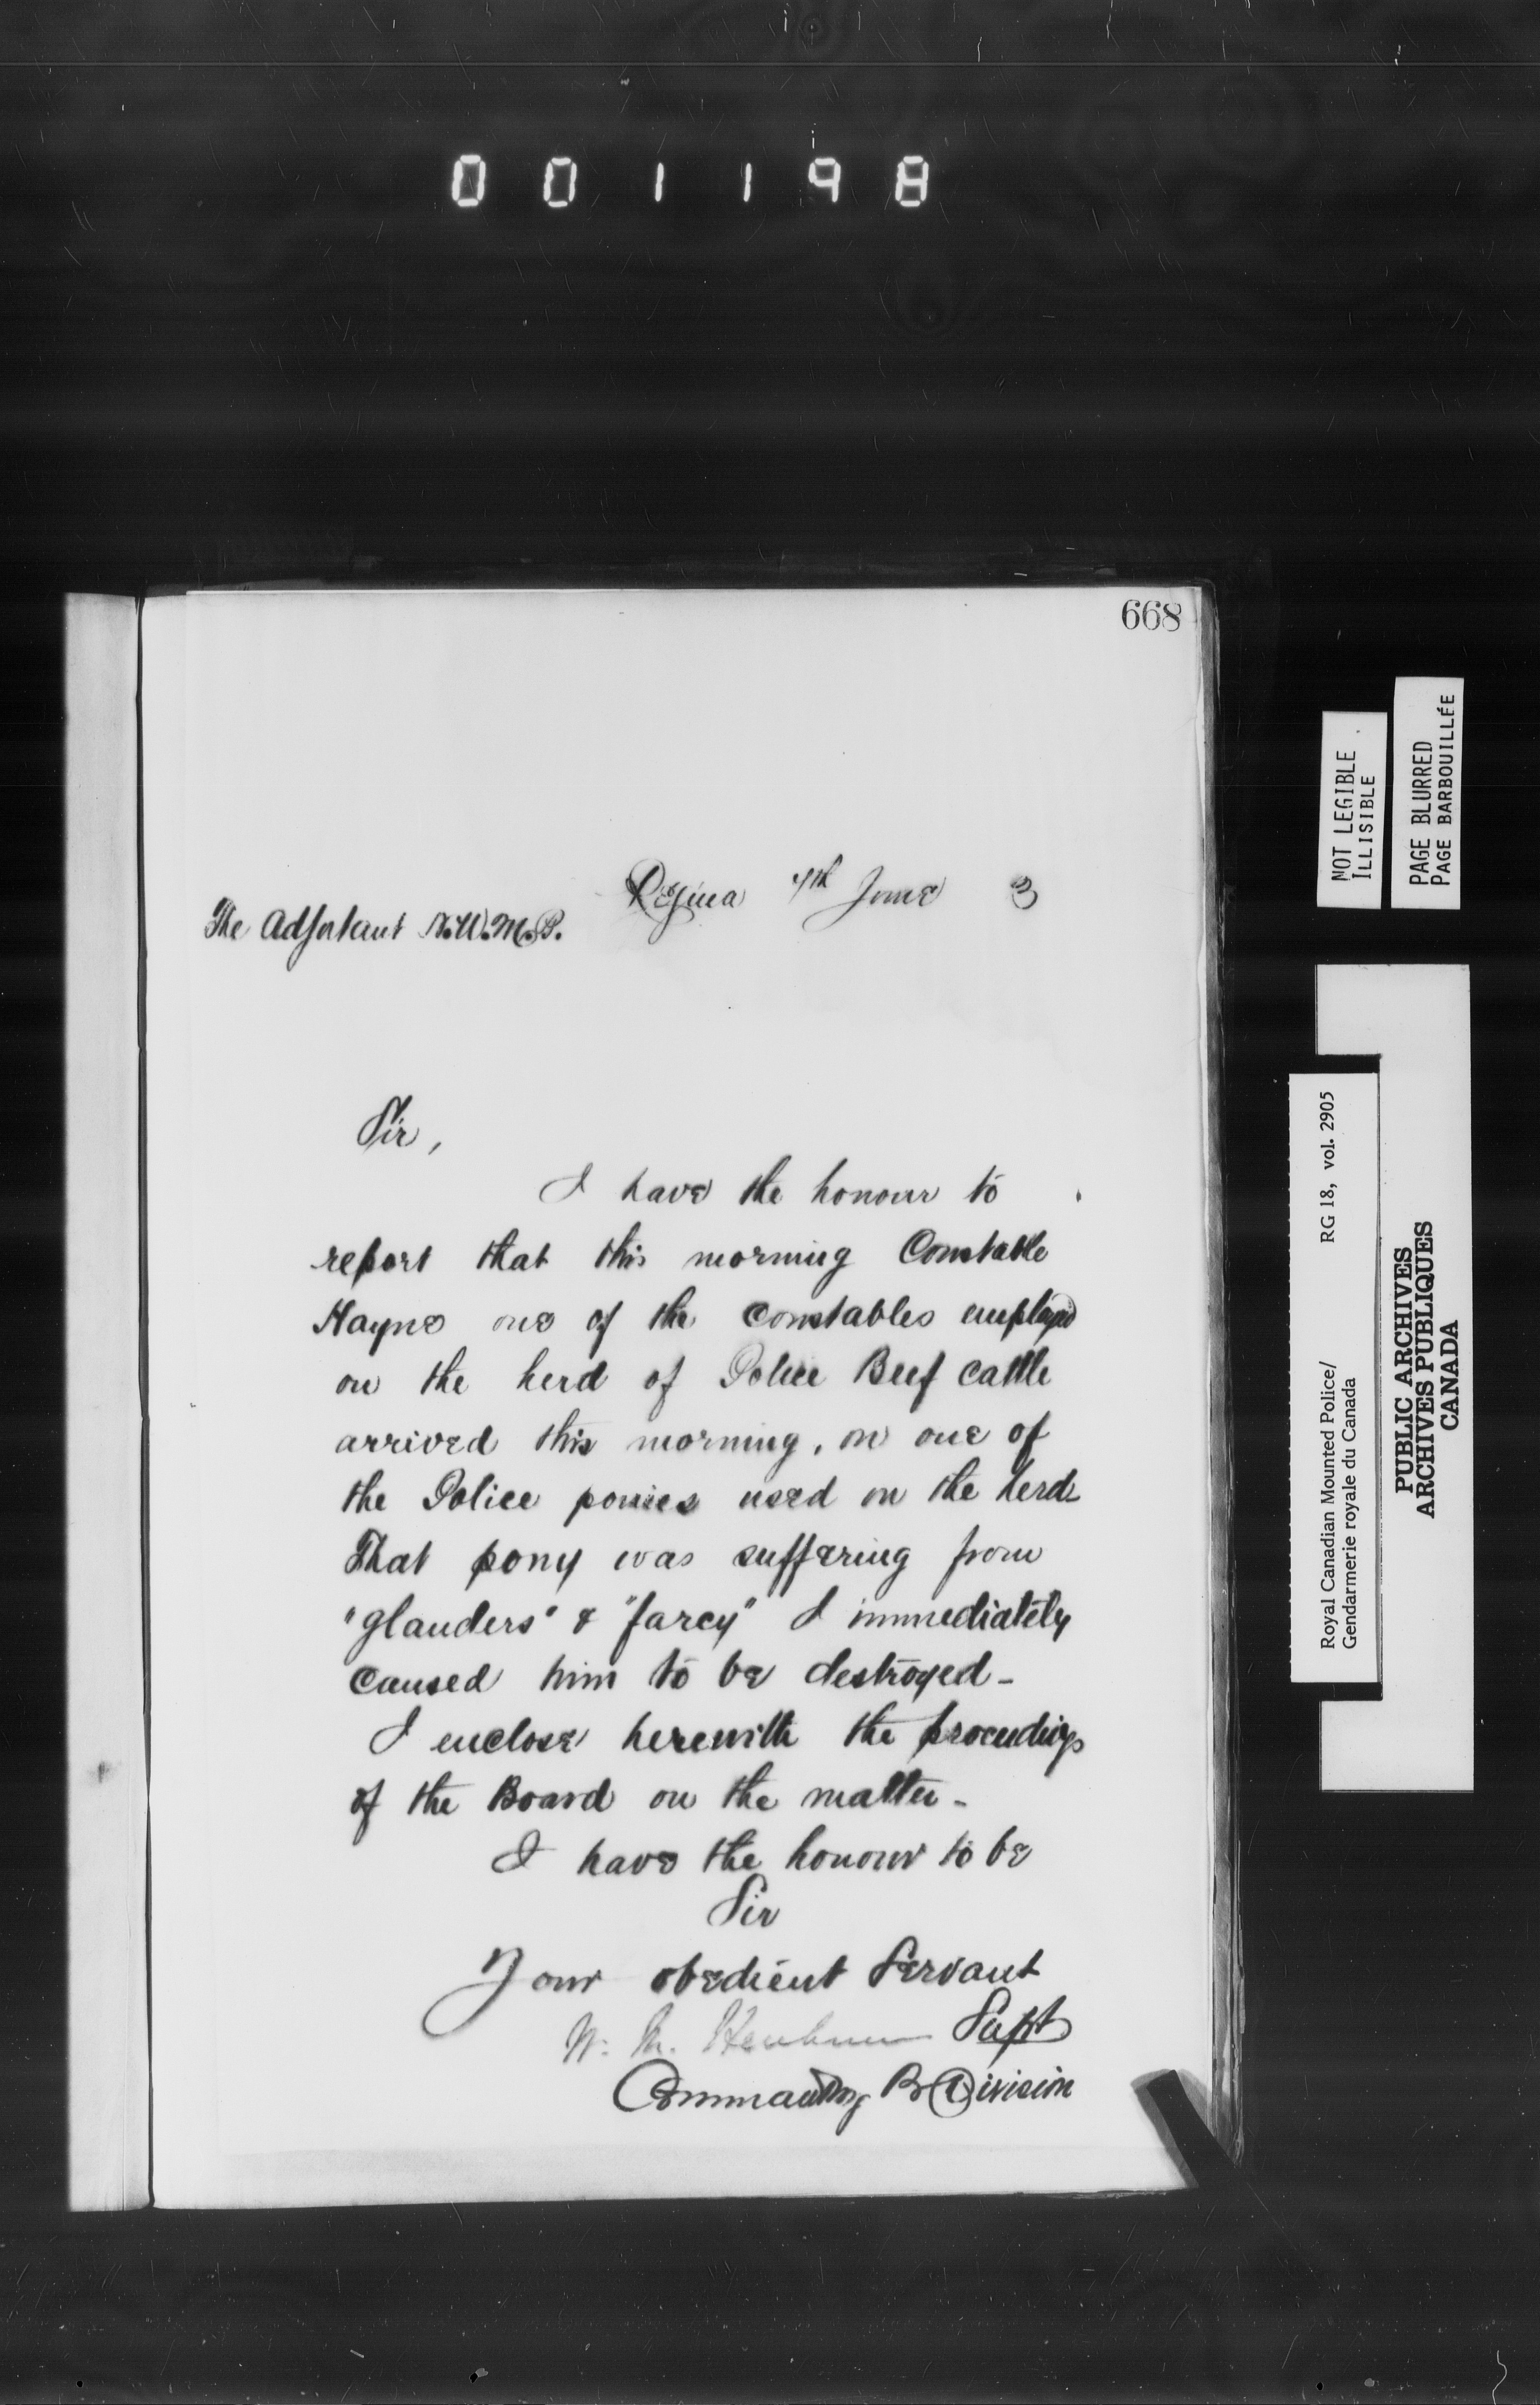 001198
668
Regina 7th June 3
The Adjutant N.W.M.P.
Sir,
I have the honour to
report that this morning Constable
Hayne one of the constables employed
on the herd of Police Beef cattle
arrived this morning, on one of
the Police ponies used on the herd-
That pony was suffering from
"glanders" & "farcy" I immediately
caused him to be destroyed-
I enclose herewith the proceedings
of the Board on the matter-
I have the honour to be
Sir
Your obedient Servant
W. M. Supt
Commanding B Division
NOT LEGIBLE
ILLISIBLE
PAGE BLURRED
PAGE BARBOUILLÉE
Royal Canadian Mounted Police/ RG 18, vol. 2905
Gendarmerie royale du Canada
PUBLIC ARCHIVES
ARCHIVES PUBLIQUES
CANADA